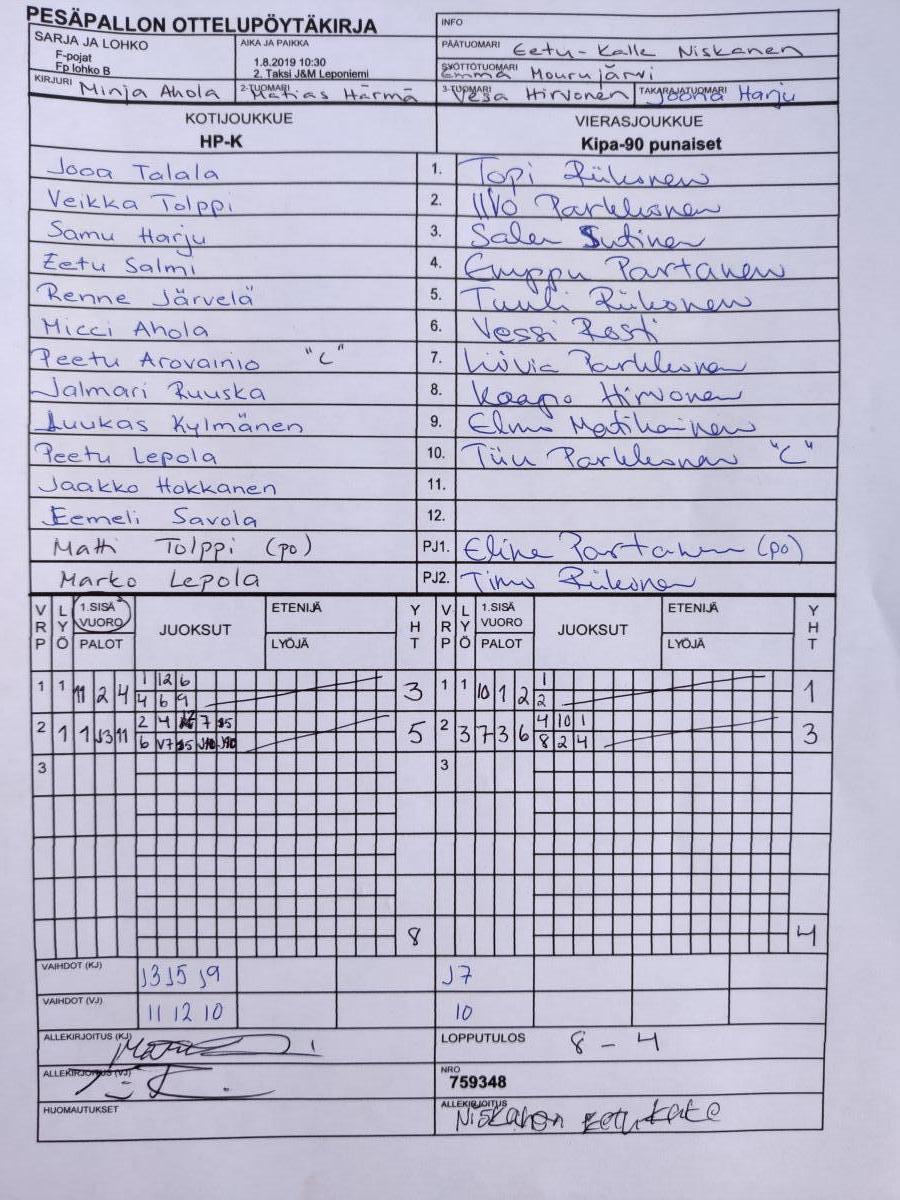 PESÄPALLON OTTELUPÖYTÄKIRJA
INFO
SARJA JA LOHKO
F-pojat
Fp lohko B
AIKA JA PAIKKA
1.8.2019 10:30
2. Taksi J&M Leponiemi
PÄÄTUOMARI Eetu-Kalle Niskanen
SYÖTTÖTUOMARI Emma Mourujärvi
KIRJURI Minja Ahola
2-TUOMARI Matias Härmä
3-TUOMARI Vesa Hirvonen
TAKARAJATUOMARI Joona Harju
KOTIJOUKKUE
HP-K
VIERASJOUKKUE
Kipa-90 punaiset
Jooa Talala 1. Topi Riikonen
Veikka Tolppi 2. IIVO Parkkonen
Samu Harju 3. Salen Sutinen
Eetu Salmi 4. Emppu Partanen
Renne Järvelä 5. Tuuli Riikonen
Micci Ahola 6. Vessi Rosti
Peetu Arovainio "C" 7. Liivia Parkkonen
Jalmari Ruuska 8. Kaapo Hirvonen
Luukas Kylmänen 9. Elmo Matikainen
Peetu Lepola 10. Tiiu Parkkonen "C"
Jaakko Hokkanen 11.
Eemeli Savola 12.
Matti Tolppi (po) PJ1. Eline Partanen (po)
Marko Lepola PJ2. Timo Riikonen
VRP LYÖ 1.SISÄ VUORO PALOT JUOKSUT ETENIJÄ LYÖJÄ YHT VRP LYÖ 1.SISÄ VUORO PALOT JUOKSUT ETENIJÄ LYÖJÄ YHT
1 1 11 2 4 1 12 6 3 1 1 10 1 2 1 1
4 6 9 2
2 1 1 J3 11 2 4 7 5 2 3 7 3 6 4 10 1 3
6 V7 8 2 4
3 3
8 4
VAIHDOT (KJ) J3 J5 J9 J7
VAIHDOT (VJ) 11 12 10 10
ALLEKIRJOITUS (KJ)
LOPPUTULOS 8 - 4
ALLEKIRJOITUS (VJ)
NRO
759348
HUOMAUTUKSET
ALLEKIRJOITUS
Niskanen